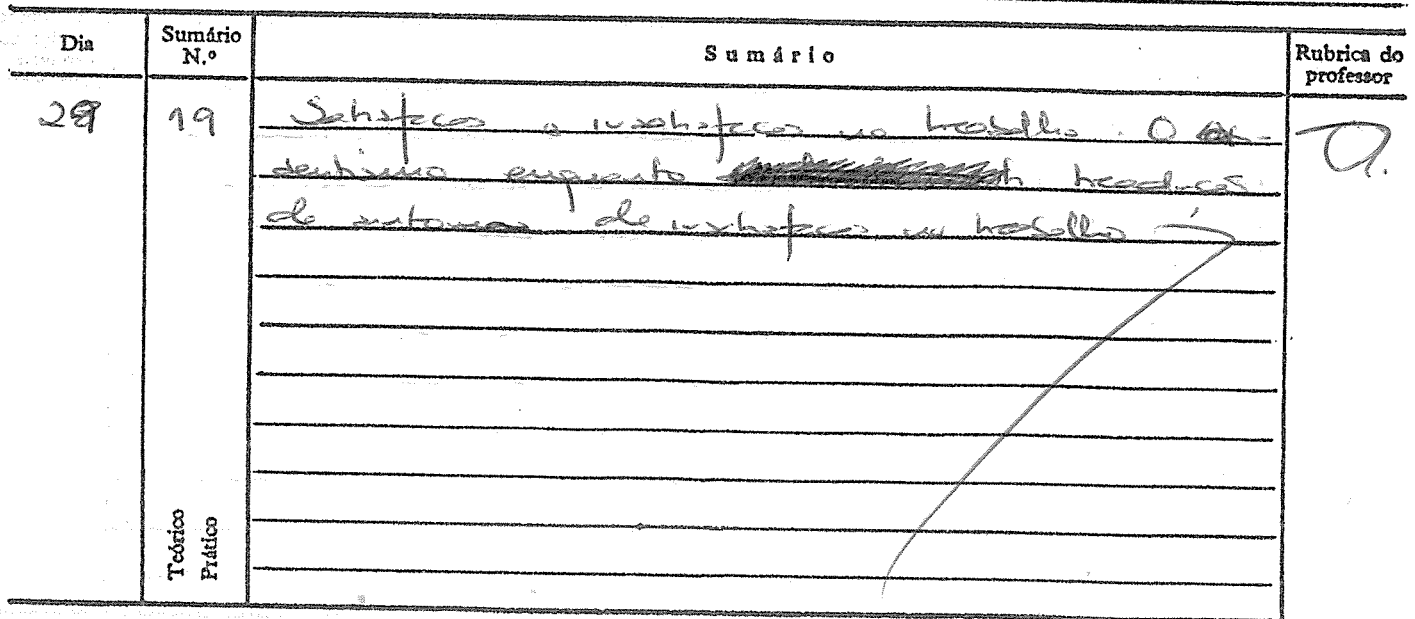 Dia Sumário N.º Sumário Rubrica do professor
19 Satisfação e insatisfação no trabalho. O
enquanto tradução
de sintomas de insatisfação no trabalho
Teórico
Prático